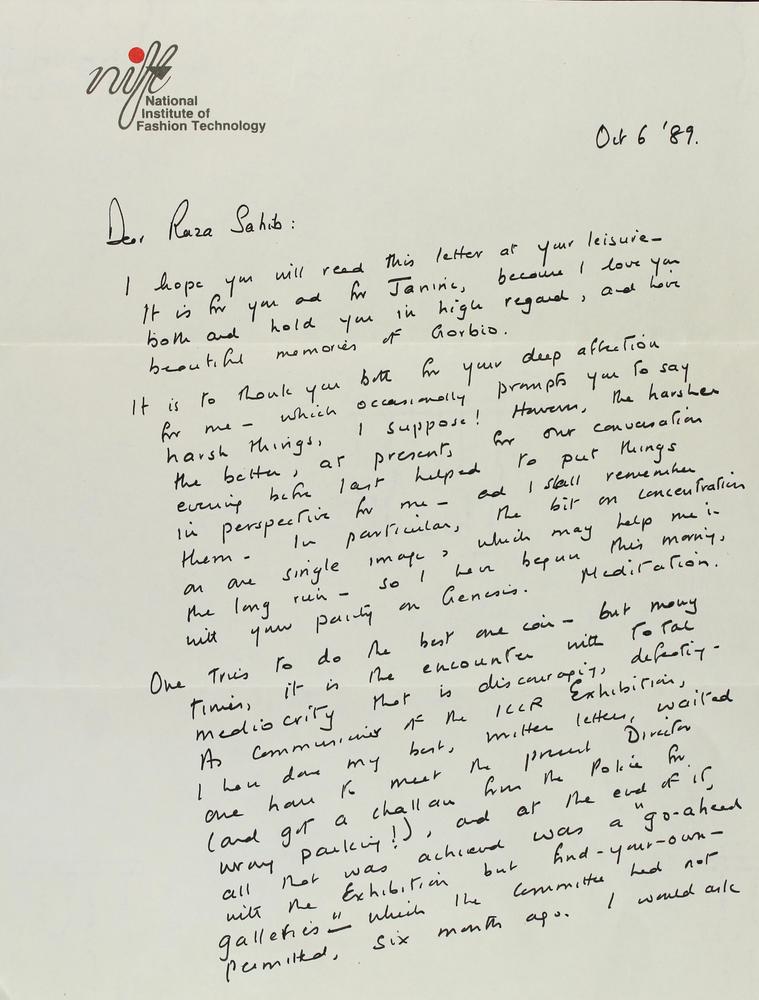 nift
National
Institute of
Fashion Technology
Oct 6 '89.
Dear Raza Sahib:
I hope you will read this letter at your leisure-
It is for you ad for Janine, because I love you
both and hold you in high regard, and have
beautiful memories of Gorbio.
It is to thank you both for your deep affection
for me - which occasionally prompts you to say
harsh things, I suppose! However, the harsher
the better, at present, for our conversation
evening before last helped to put things
in perspective for me - ad I shall remember
them. In particular, the bit on concentration
on one single image, which may help me in
the long run - so I have begun this morning,
with your painting on Genesis. Meditation.
One tries to do the best one can - but many
times, it is the encounter with total
mediocrity that is discouraging, defeating.
As Commissioner of the ICCR Exhibition,
I have done my best, written letters, waited
one hour to meet the present Director
(and got a challan from the Police for
wrong parking!), and at the end of it,
all that was achieved was a "go-ahead
with the Exhibition but find-your-own-
galleries" - which the Committee had not
permitted, six month ago. I would ask